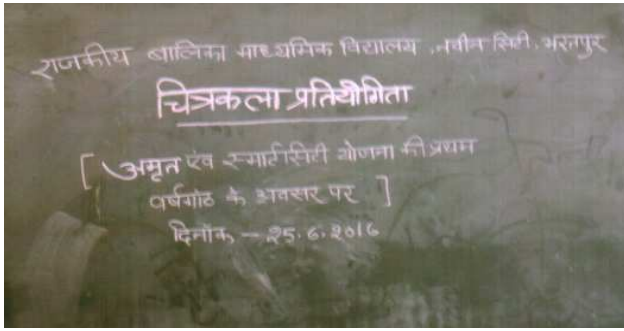 राजकीय बालिका माध्यमिक विद्यालय, नवीन सिटी, भरतपुर
चित्रकला प्रतियोगिता
[ अमृत एंव स्मार्टसिटी योजना की प्रथम
वर्षगाँठ के अवसर पर ]
दिनाँक - २5.6.२०16